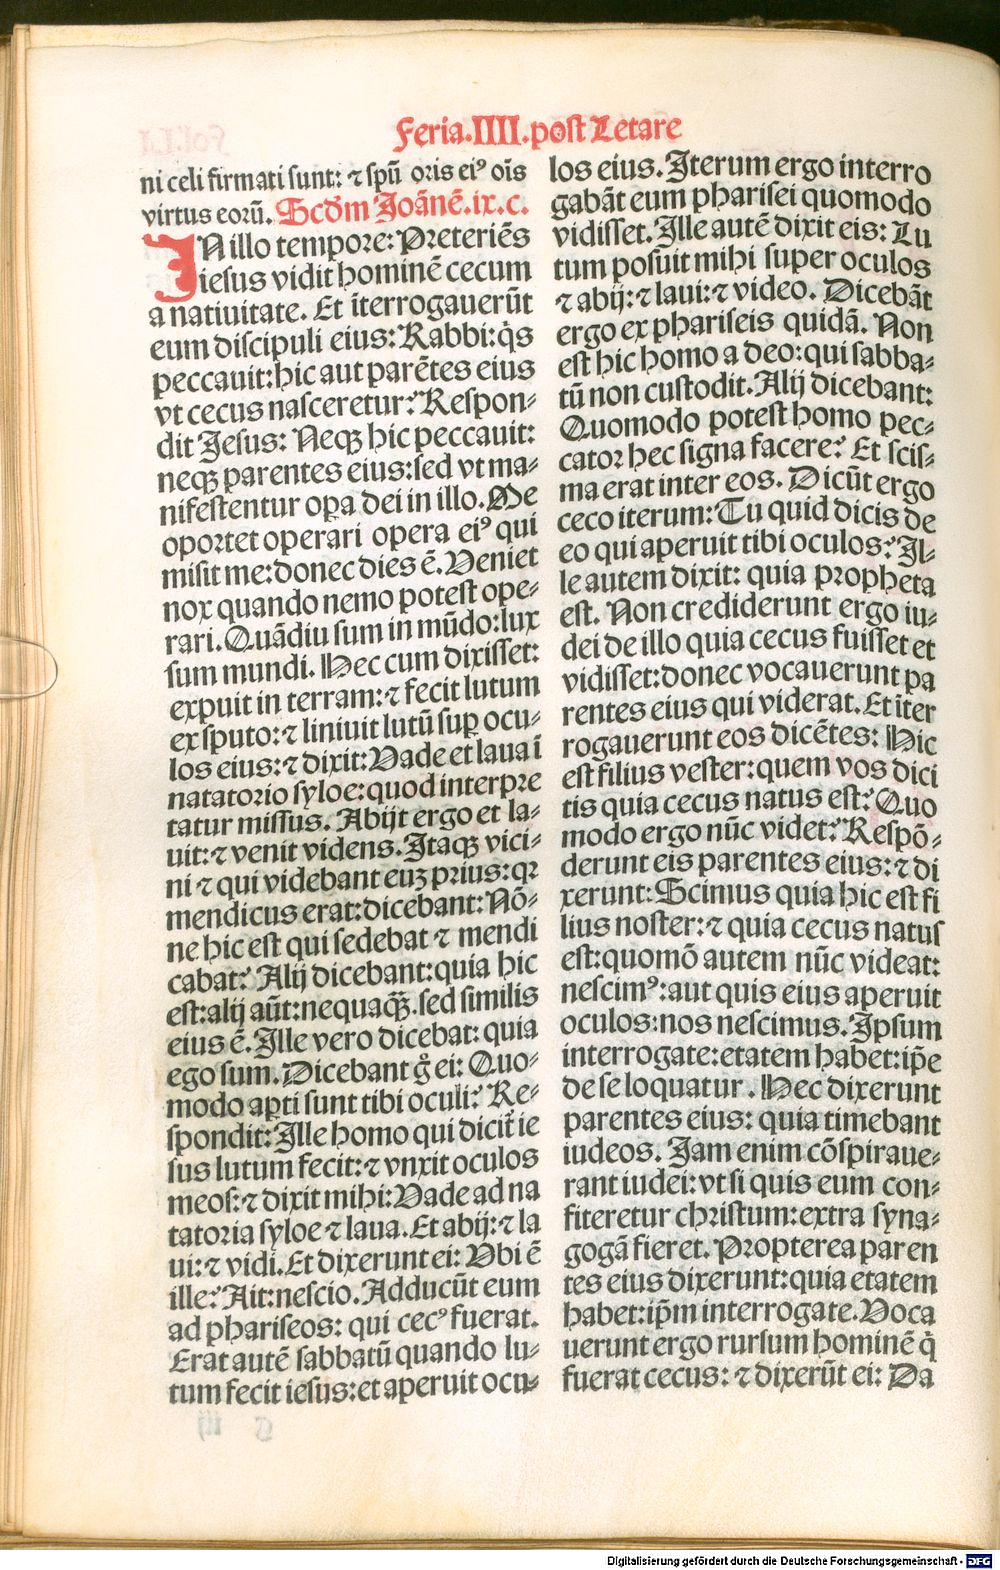 Feria.IIII.post Letare
ni celi firmati sunt: ⁊ spū oris eiꝰ oīs
virtus eorū. Scḋm Joānē.ix.c.
IN illo tempore: Preteriēs
iesus vidit hominē cecum
a natiuitate. Et īterrogauerūt
eum discipuli eius: Rabbi: q̇s
peccauit: hic aut parētes eius
vt cecus nasceretur? Respon-
dit Jesus: Neqꝫ hic peccauit:
neqꝫ parentes eius: sed vt ma-
nifestentur oꝑa dei in illo. Me
oportet operari opera eiꝰ qui
misit me: donec dies ē. Veniet
nox quando nemo potest ope-
rari. Quādiu sum in mūdo: lux
sum mundi. Hec cum dixisset:
expuit in terram: ⁊ fecit lutum
ex sputo: ⁊ liniuit lutū suꝑ ocu-
los eius: ⁊ dixit: Vade et laua ī
natatorio syloe: quod interpre
tatur missus. Abijt ergo et la-
uit: ⁊ venit videns. Itaqꝫ vici-
ni ⁊ qui videbant euꝫ prius: qꝛ
mendicus erat: dicebant: Nō-
ne hic est qui sedebat ⁊ mendi
cabat? Alij dicebant: quia hic
est: alij aūt: nequaqꝫ̄. sed similis
eius ē. Ille vero dicebat: quia
ego sum. Dicebant g̊ ei: Quo-
modo aꝑti sunt tibi oculi? Re-
spondit: Ille homo qui dicit̃ ie
sus lutum fecit: ⁊ vnxit oculos
meos: ⁊ dixit mihi: Vade ad na
tatoria syloe ⁊ laua. Et abij: ⁊ la
ui: ⁊ vidi. Et dixerunt ei: Vbi ē
ille? Ait: nescio. Adducūt eum
ad phariseos: qui cecꝰ fuerat.
Erat autē sabbatū quando lu-
tum fecit iesus: et aperuit ocu-
los eius. Iterum ergo interro
gabāt eum pharisei quomodo
vidisset. Ille autē dixit eis: Lu
tum posuit mihi super oculos
⁊ abij: ⁊ laui: ⁊ video. Dicebāt
ergo ex phariseis quidā. Non
est hic homo a deo: qui sabba-
tū non custodit. Alij dicebant:
Quomodo potest homo pec-
cator hec signa facere? Et scis-
ma erat inter eos. Dicūt ergo
ceco iterum: Tu quid dicis de
eo qui aperuit tibi oculos? Il-
le autem dixit: quia propheta
est. Non crediderunt ergo iu-
dei de illo quia cecus fuisset et
vidisset: donec vocauerunt pa
rentes eius qui viderat. Et īter
rogauerunt eos dicētes: Hic
est filius vester: quem vos dici
tis quia cecus natus est? Quo
modo ergo nūc videt? Respō-
derunt eis parentes eius: ⁊ di
xerunt: Scimus quia hic est fi
lius noster: ⁊ quia cecus natus
est: quomō autem nūc videat:
nescimꝰ: aut quis eius aperuit
oculos: nos nescimus. Ipsum
interrogate: etatem habet: ip̄e
de se loquatur. Hec dixerunt
parentes eius: quia timebant
iudeos. Jam enim cōspiraue-
rant iudei: vt si quis eum con-
fiteretur christum: extra syna-
gogā fieret. Propterea paren
tes eius dixerunt: quia etatem
habet: ip̄m interrogate. Voca
uerunt ergo rursum hominē q̇
fuerat cecus: ⁊ dixerūt ei: Da
Digitalisierung gefördert durch die Deutsche Forschungsgemeinschaft - DFG